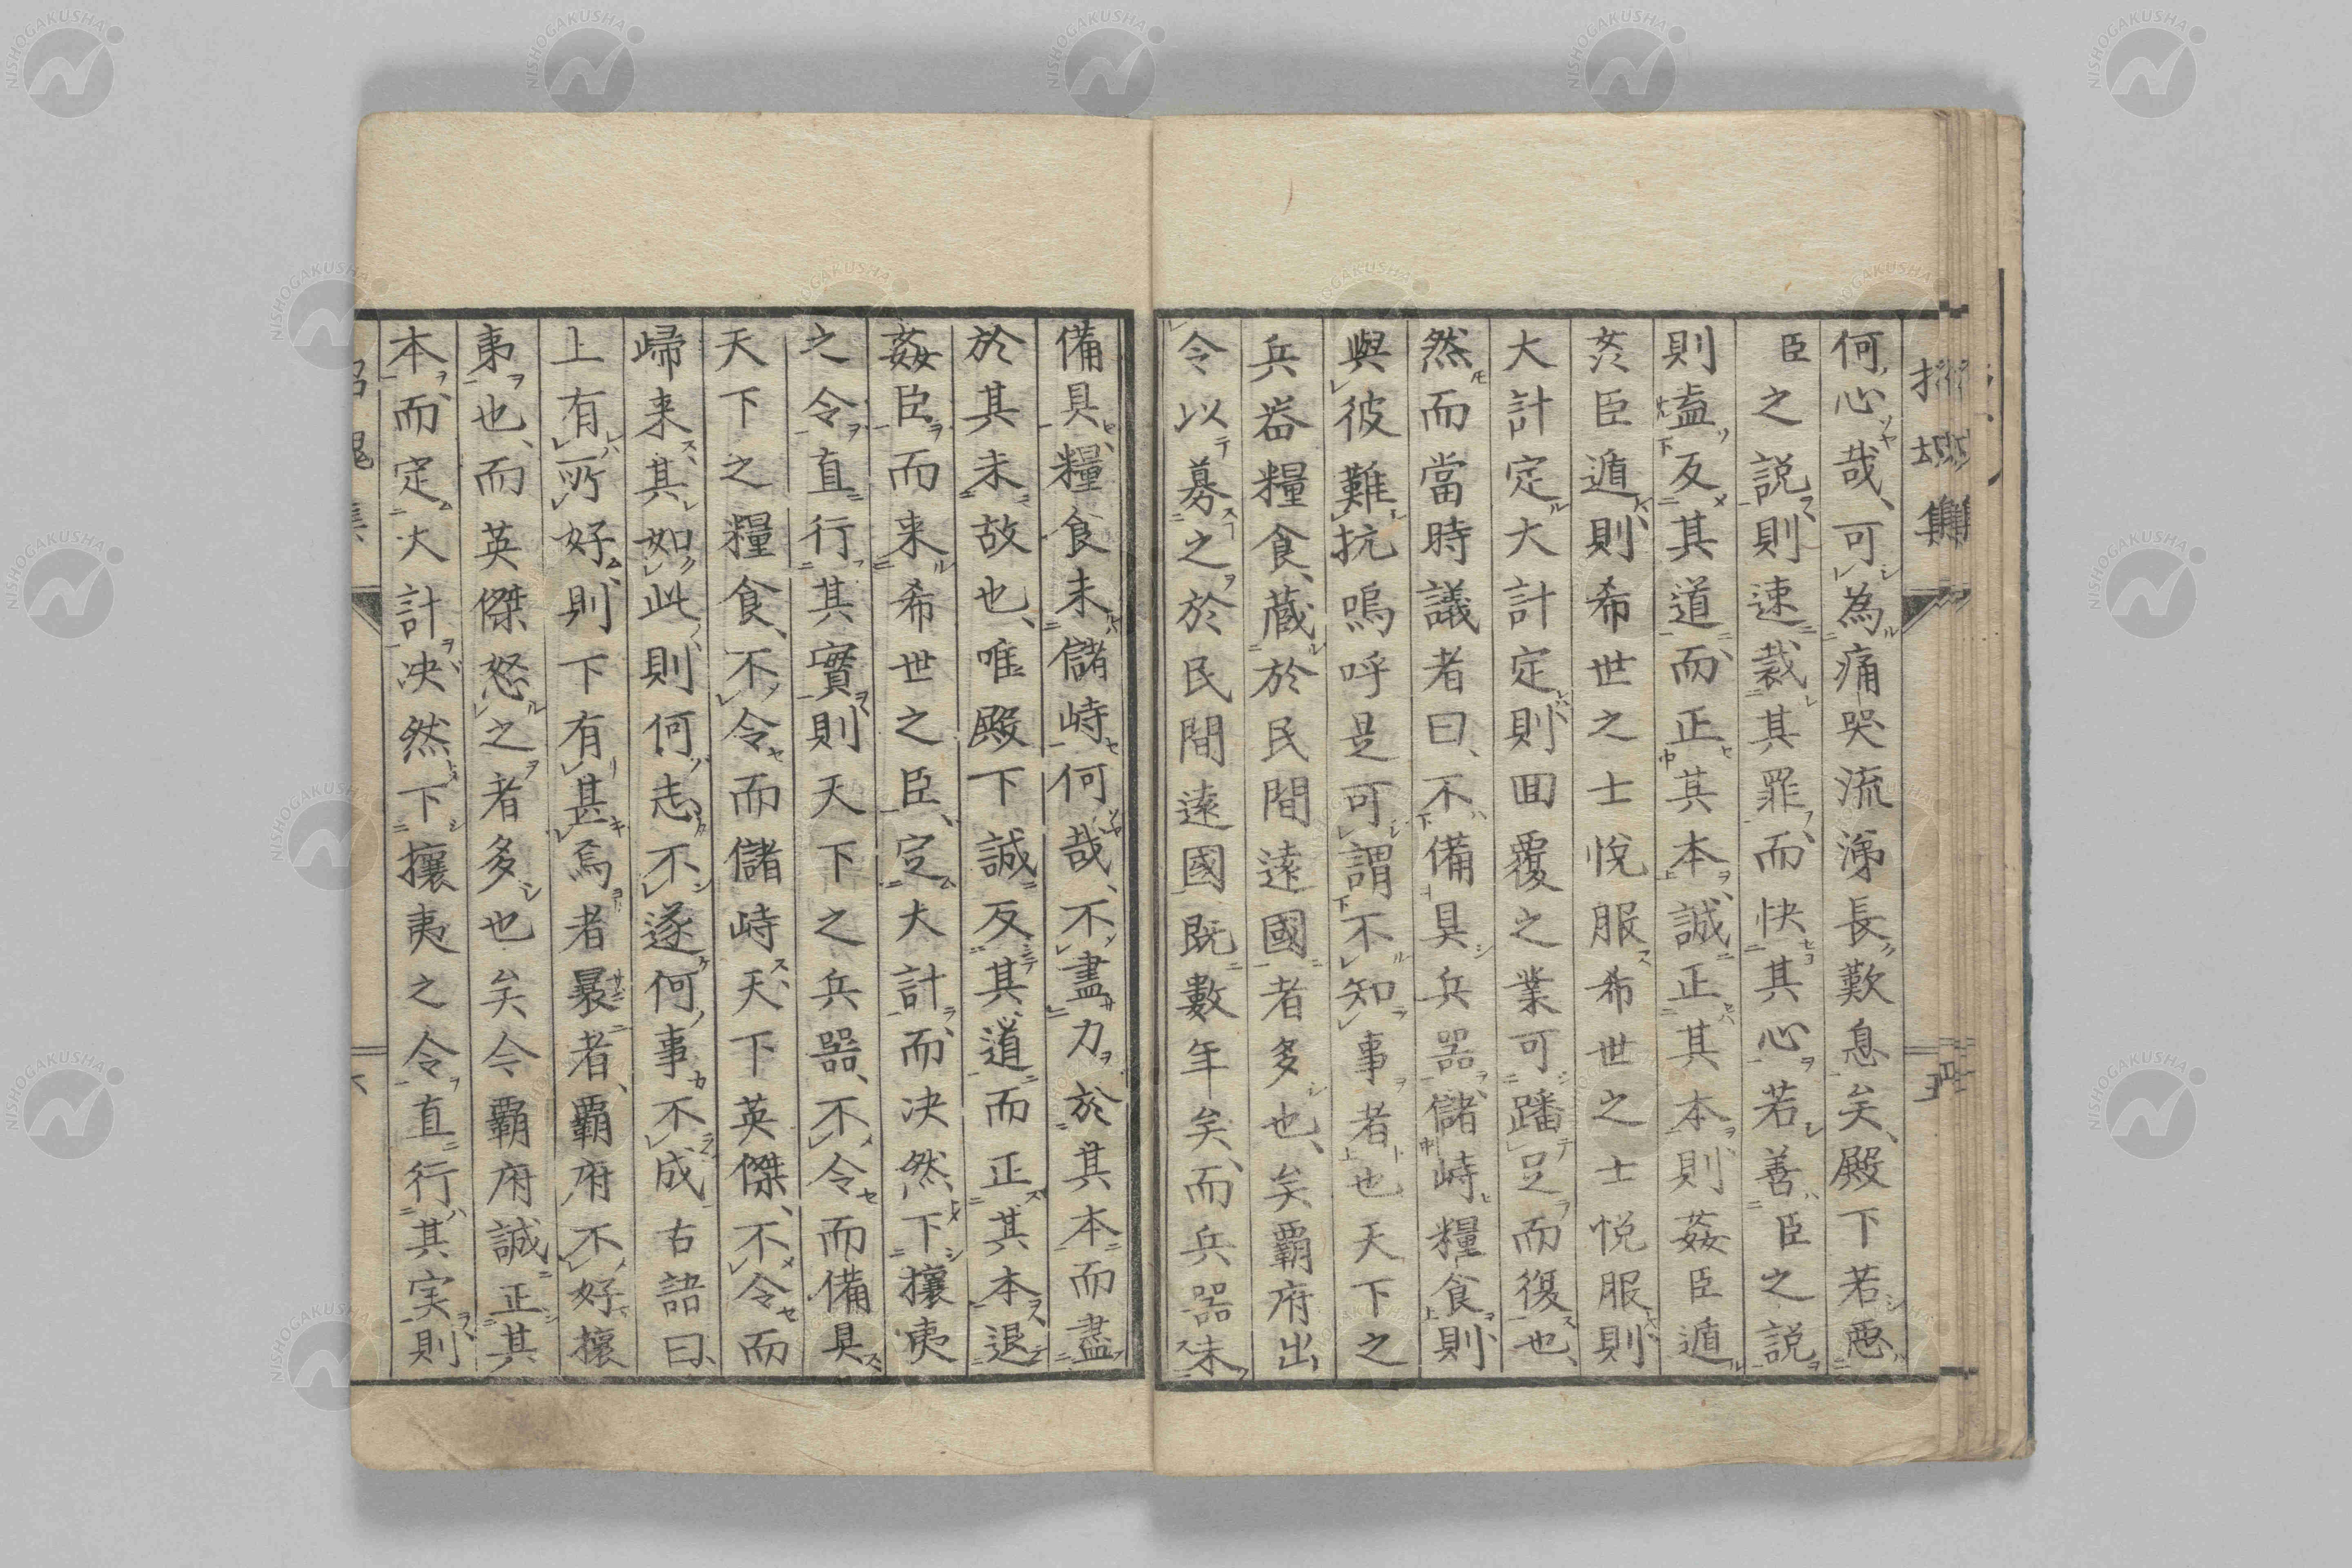 何心哉、可為痛哭流涕長歎息矣、殿下若惡
臣之説、則速裁其罪、而快其心、若善臣之説
則盍反其道、而正其本、誠正其本、則姦臣遁
姦臣遁、則希世之士悅服希世之士悅服則
大計定大計定則回覆之業可蹯足而復也、
然而當時議者曰、不備具兵器儲峙糧食則
與彼難抗嗚呼是可謂不知事者也天下之
兵器糧食、蔵於民間遠國者多也、矣覇府出
令以募之於民間遠國既數年矣、而兵器未
備具、糧食未儲峙何哉、不盡力於其本而盡
於其末故也、唯殿下誠反其道而正其本退
姦臣而来希世之臣、定大計、而决然下攘夷
之令直行其實則天下之兵器、不令而備具
天下之糧食、不令而儲峙天下英傑、不令而
歸来、其如此則何志不遂何事不成古語曰、
上有所好、則下有甚焉者㬥者、覇府不好攘
夷也、而英傑怒之者多也矣今覇府誠正其
本、而定大計决然下攘夷之令直行其実則
NISHOGAKUSHA